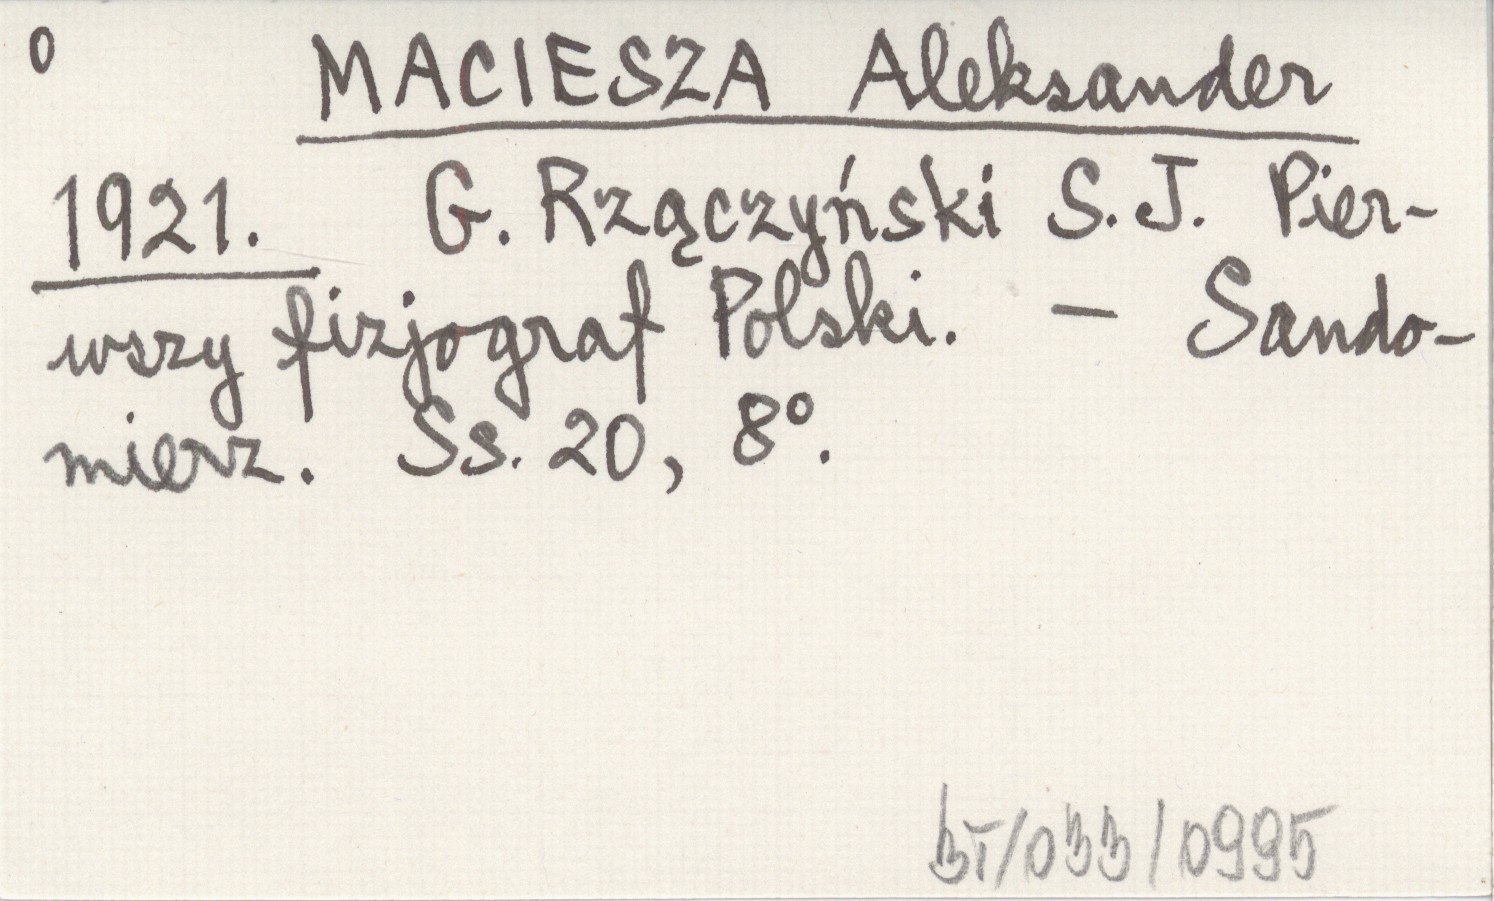 0 MACIESZA Aleksander
1921. G. Rzączyński S.J. Pier-
wszy fizjograf Polski. — Sando-
mierz. Ss. 20, 8°.
BT/033/0995